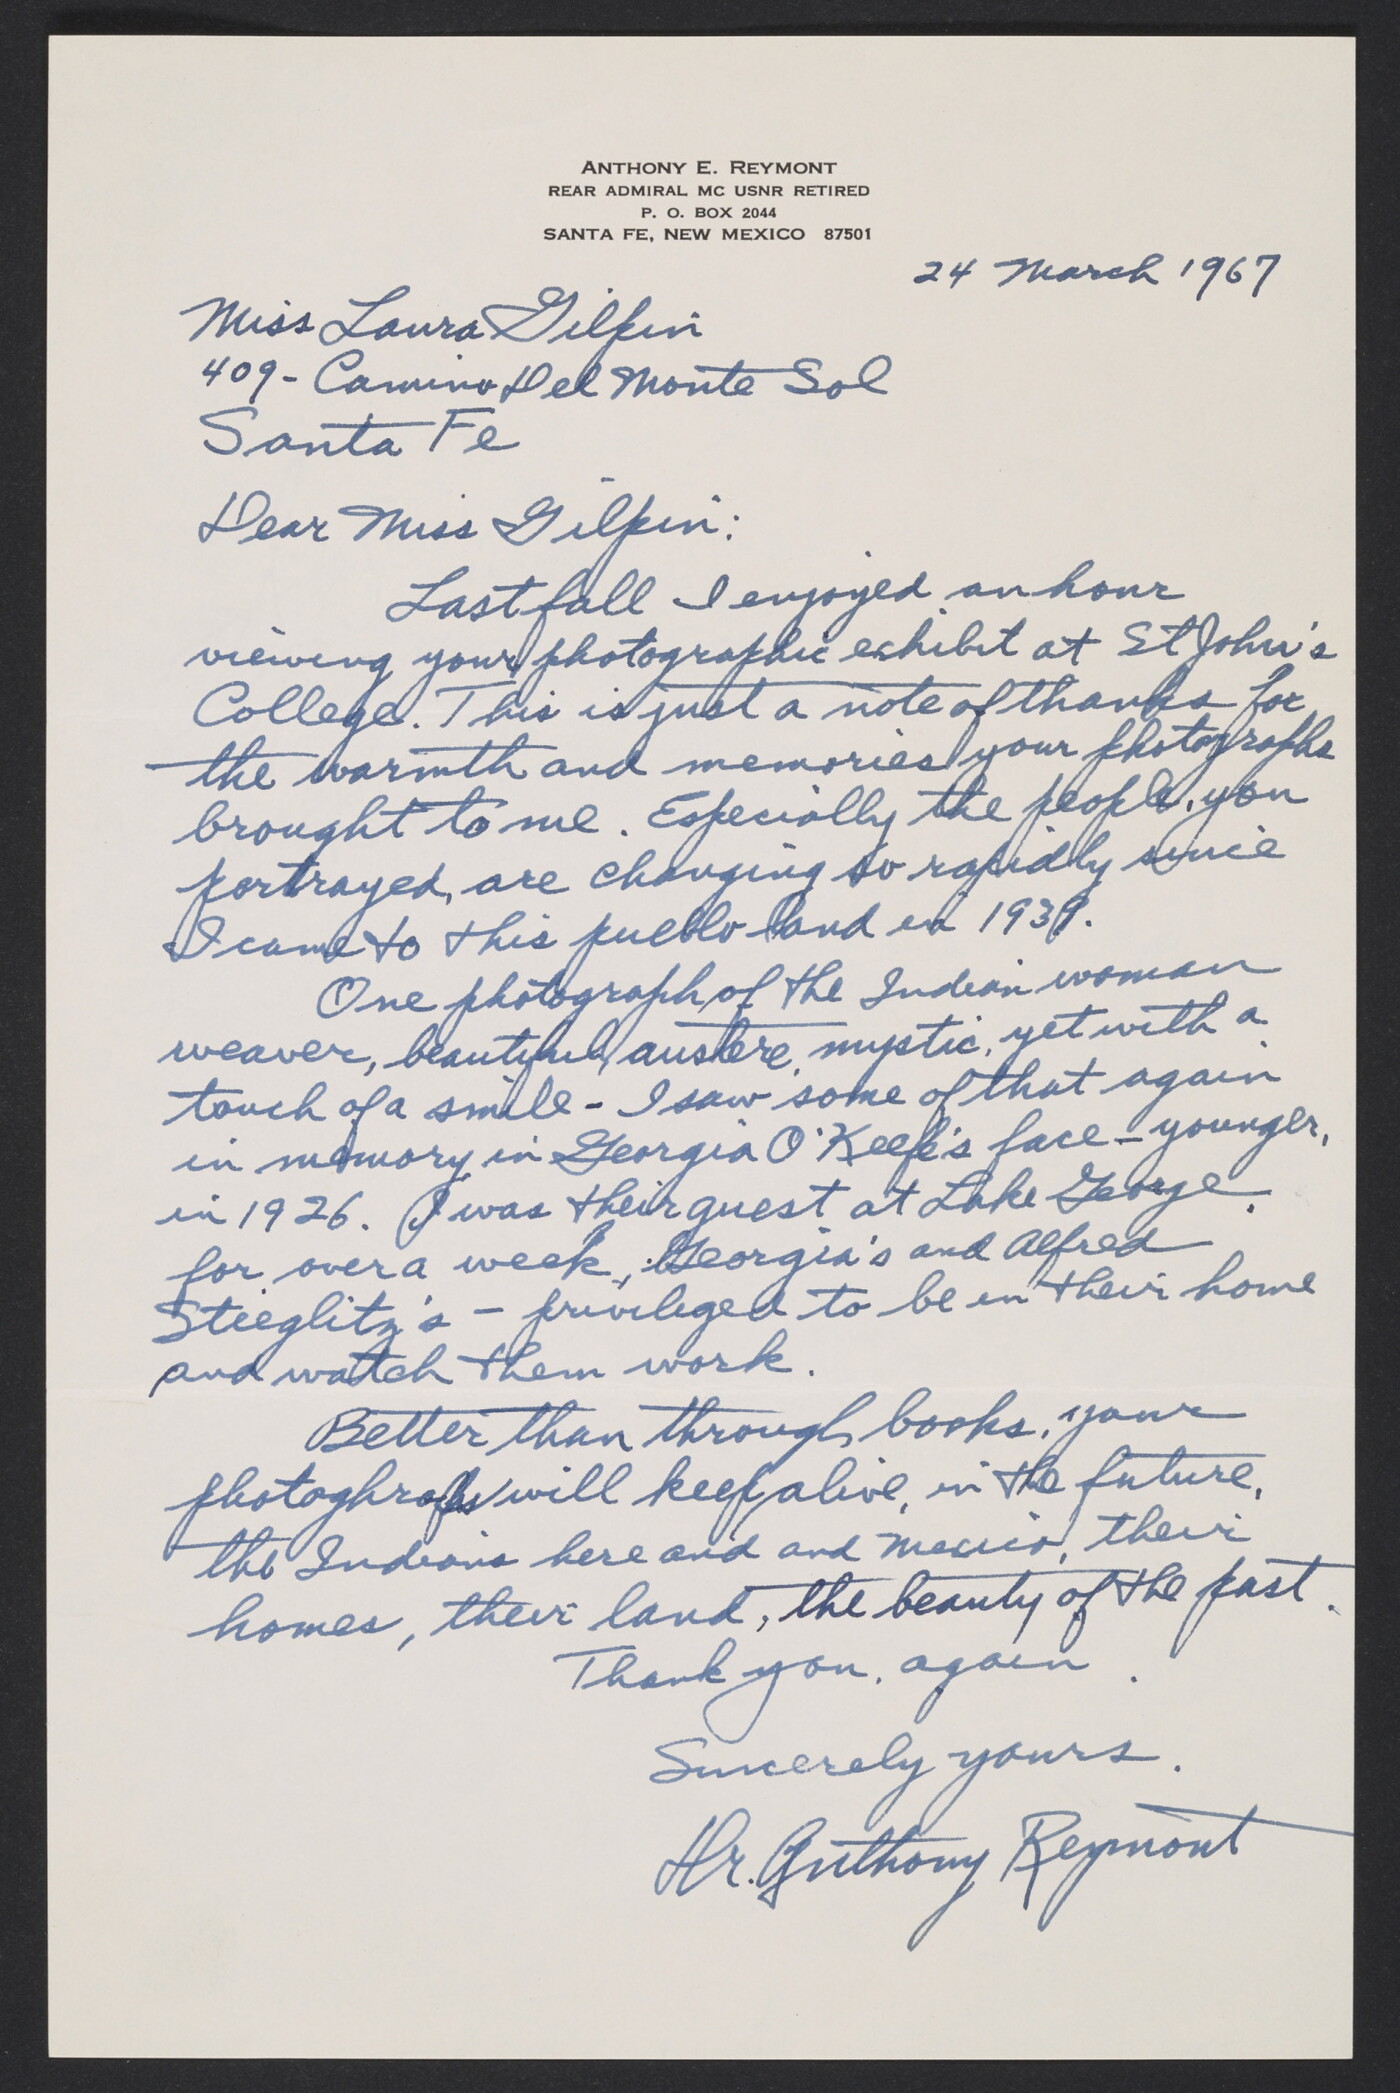 ANTHONY E. REYMONT
REAR ADMIRAL MC USNR RETIRED
P. O. BOX 2044
SANTA FE, NEW MEXICO 87501
24 March 1967
Miss Laura Gilpin
409- Camino Del Monte Sol
Santa Fe
Dear Miss Gilpin:
Last fall I enjoyed an hour
viewing your photographic exhibit at St John's
College. This is just a note of thanks for
the warmth and memories your photographs
brought to me. Especially the people, you
portrayed, are changing so rapidly since
I came to this pueblo land in 1939.
One photograph of the Indian woman
weaver, beautiful, austere, mystic, yet with a
touch of a smile - I saw some of that again
in memory in Georgia O'Keefe's face - younger,
in 1926. I was their guest at Lake George,
for over a week, Georgia's and Alfred
Stieglitz's - privileged to be in their home
and watch them work.
Better than through books, your
photoghraphs will keep alive, in the future,
the Indians here and and Mexico, their
homes, their land, the beauty of the past.
Thank you, again.
Sincerely yours.
Dr. Anthony Reymont